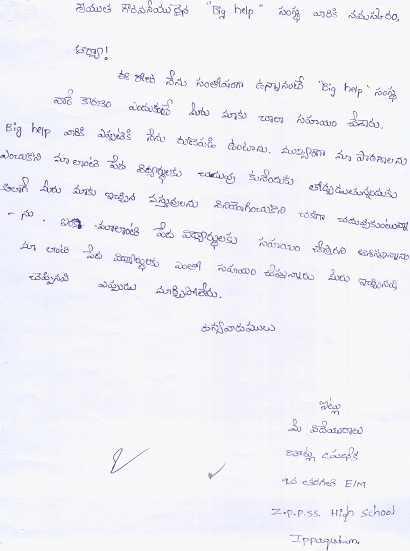 గౌరవనీయులైన "Big help" సంస్థ వారికి నమస్కారం,
ఆర్యా!
ఈ రోజు నేను సంతోషంగా ఉన్నానంటే "Big help" సంస్థ
వారే కారణం ఎందుకంటే మీరు మాకు చాలా సహాయం చేసారు.
Big help వారికి ఎప్పటికి నేను రుణపడి ఉంటాను. మా పాఠశాలను
ఎంచుకుని మాలాంటి పేద విద్యార్థులకు చదువు
అలాగే మీరు మాకు ఇచ్చిన వస్తువులను వినియోగించుకుని చక్కగా
- ను. ఇలా మాలాంటి పేద విద్యార్థులకు సహాయం చేస్తారని ఆశిస్తున్నాను
మా లాంటి పేద విద్యార్థులకు ఎంతో సహాయం చేస్తున్నారు మీరు
ఎప్పుడు మర్చిపోలేను.
ధన్యవాదములు
ఇట్లు
మీ విదేయురాలు
తరగతి E/M
Z.P.P.SS. High School
Ippagudem.